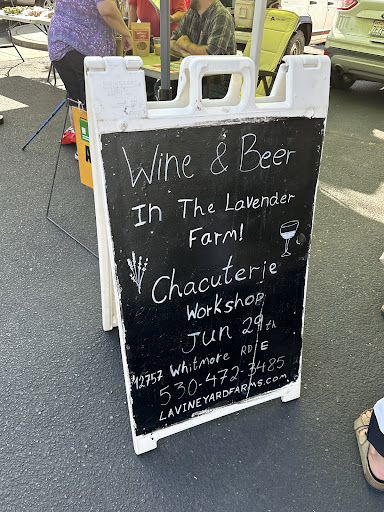 Wine & Beer
In The Lavender
Farm!
Chacuterie
Workshop
Jun 29th
12757 Whitmore RD E
530-472-3485
LAVINEYARDFARMS.COM